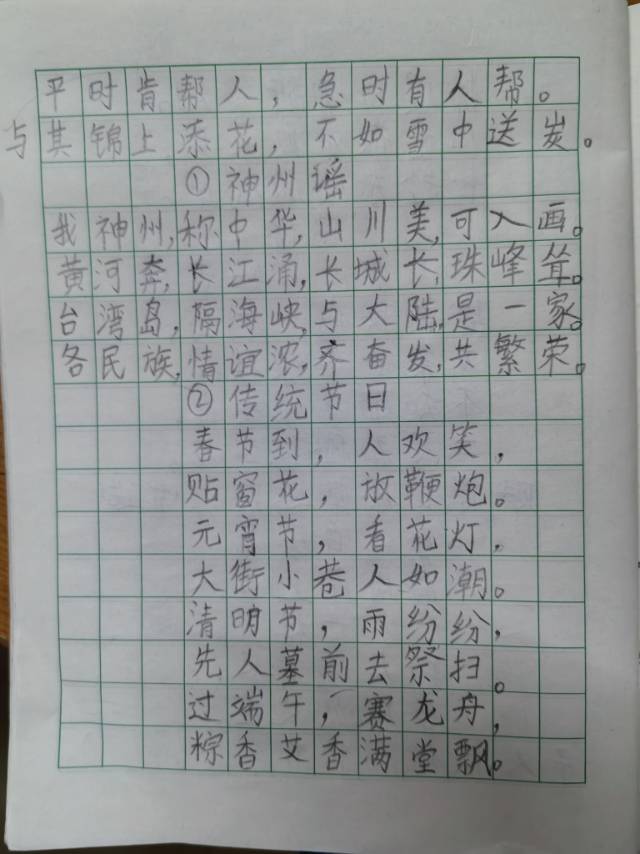 平时肯帮人，急时有人帮。
与其锦上添花，不如雪中送炭。
①神州谣
我神州，称中华，山川美，可入画。
黄河奔，长江涌，长城长，珠峰耸。
台湾岛，隔海峡，与大陆，是一家。
各民族，情谊浓，齐奋发，共繁荣。
②传统节日
春节到，人欢笑，
贴窗花，放鞭炮。
元宵节，看花灯，
大街小巷人如潮。
清明节，雨纷纷，
先人墓前去祭扫。
过端午，赛龙舟，
粽香艾香满堂飘。